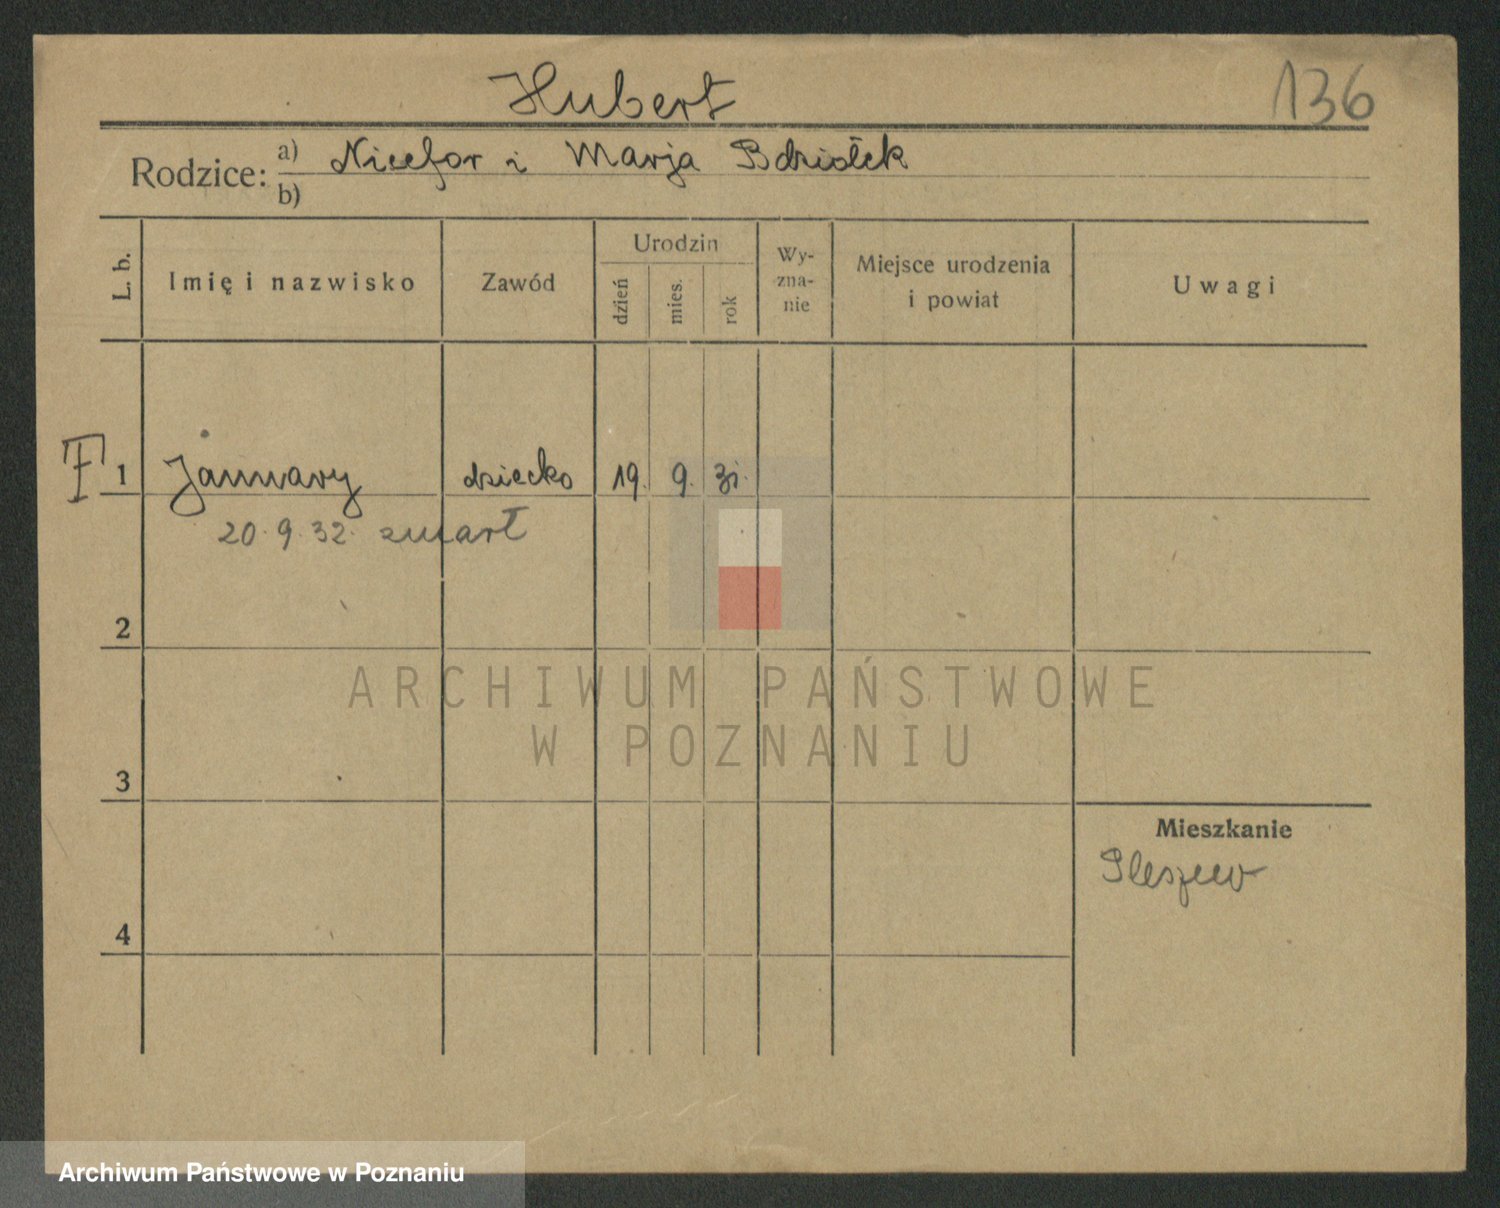 Hubert
136
Rodzice: a) Nicefor i Marja Bdziołek
b)
L. b.
Imię i nazwisko
Zawód
Urodzin
dzień
mies.
rok
Wy-
zna-
nie
Miejsce urodzenia
i powiat
Uwagi
F 1 January dziecko 19. 9. 31.
20.9.32. zmarł
2
3
Mieszkanie
Pleszew
4
ARCHIWUM PAŃSTWOWE
W POZNANIU
Archiwum Państwowe w Poznaniu